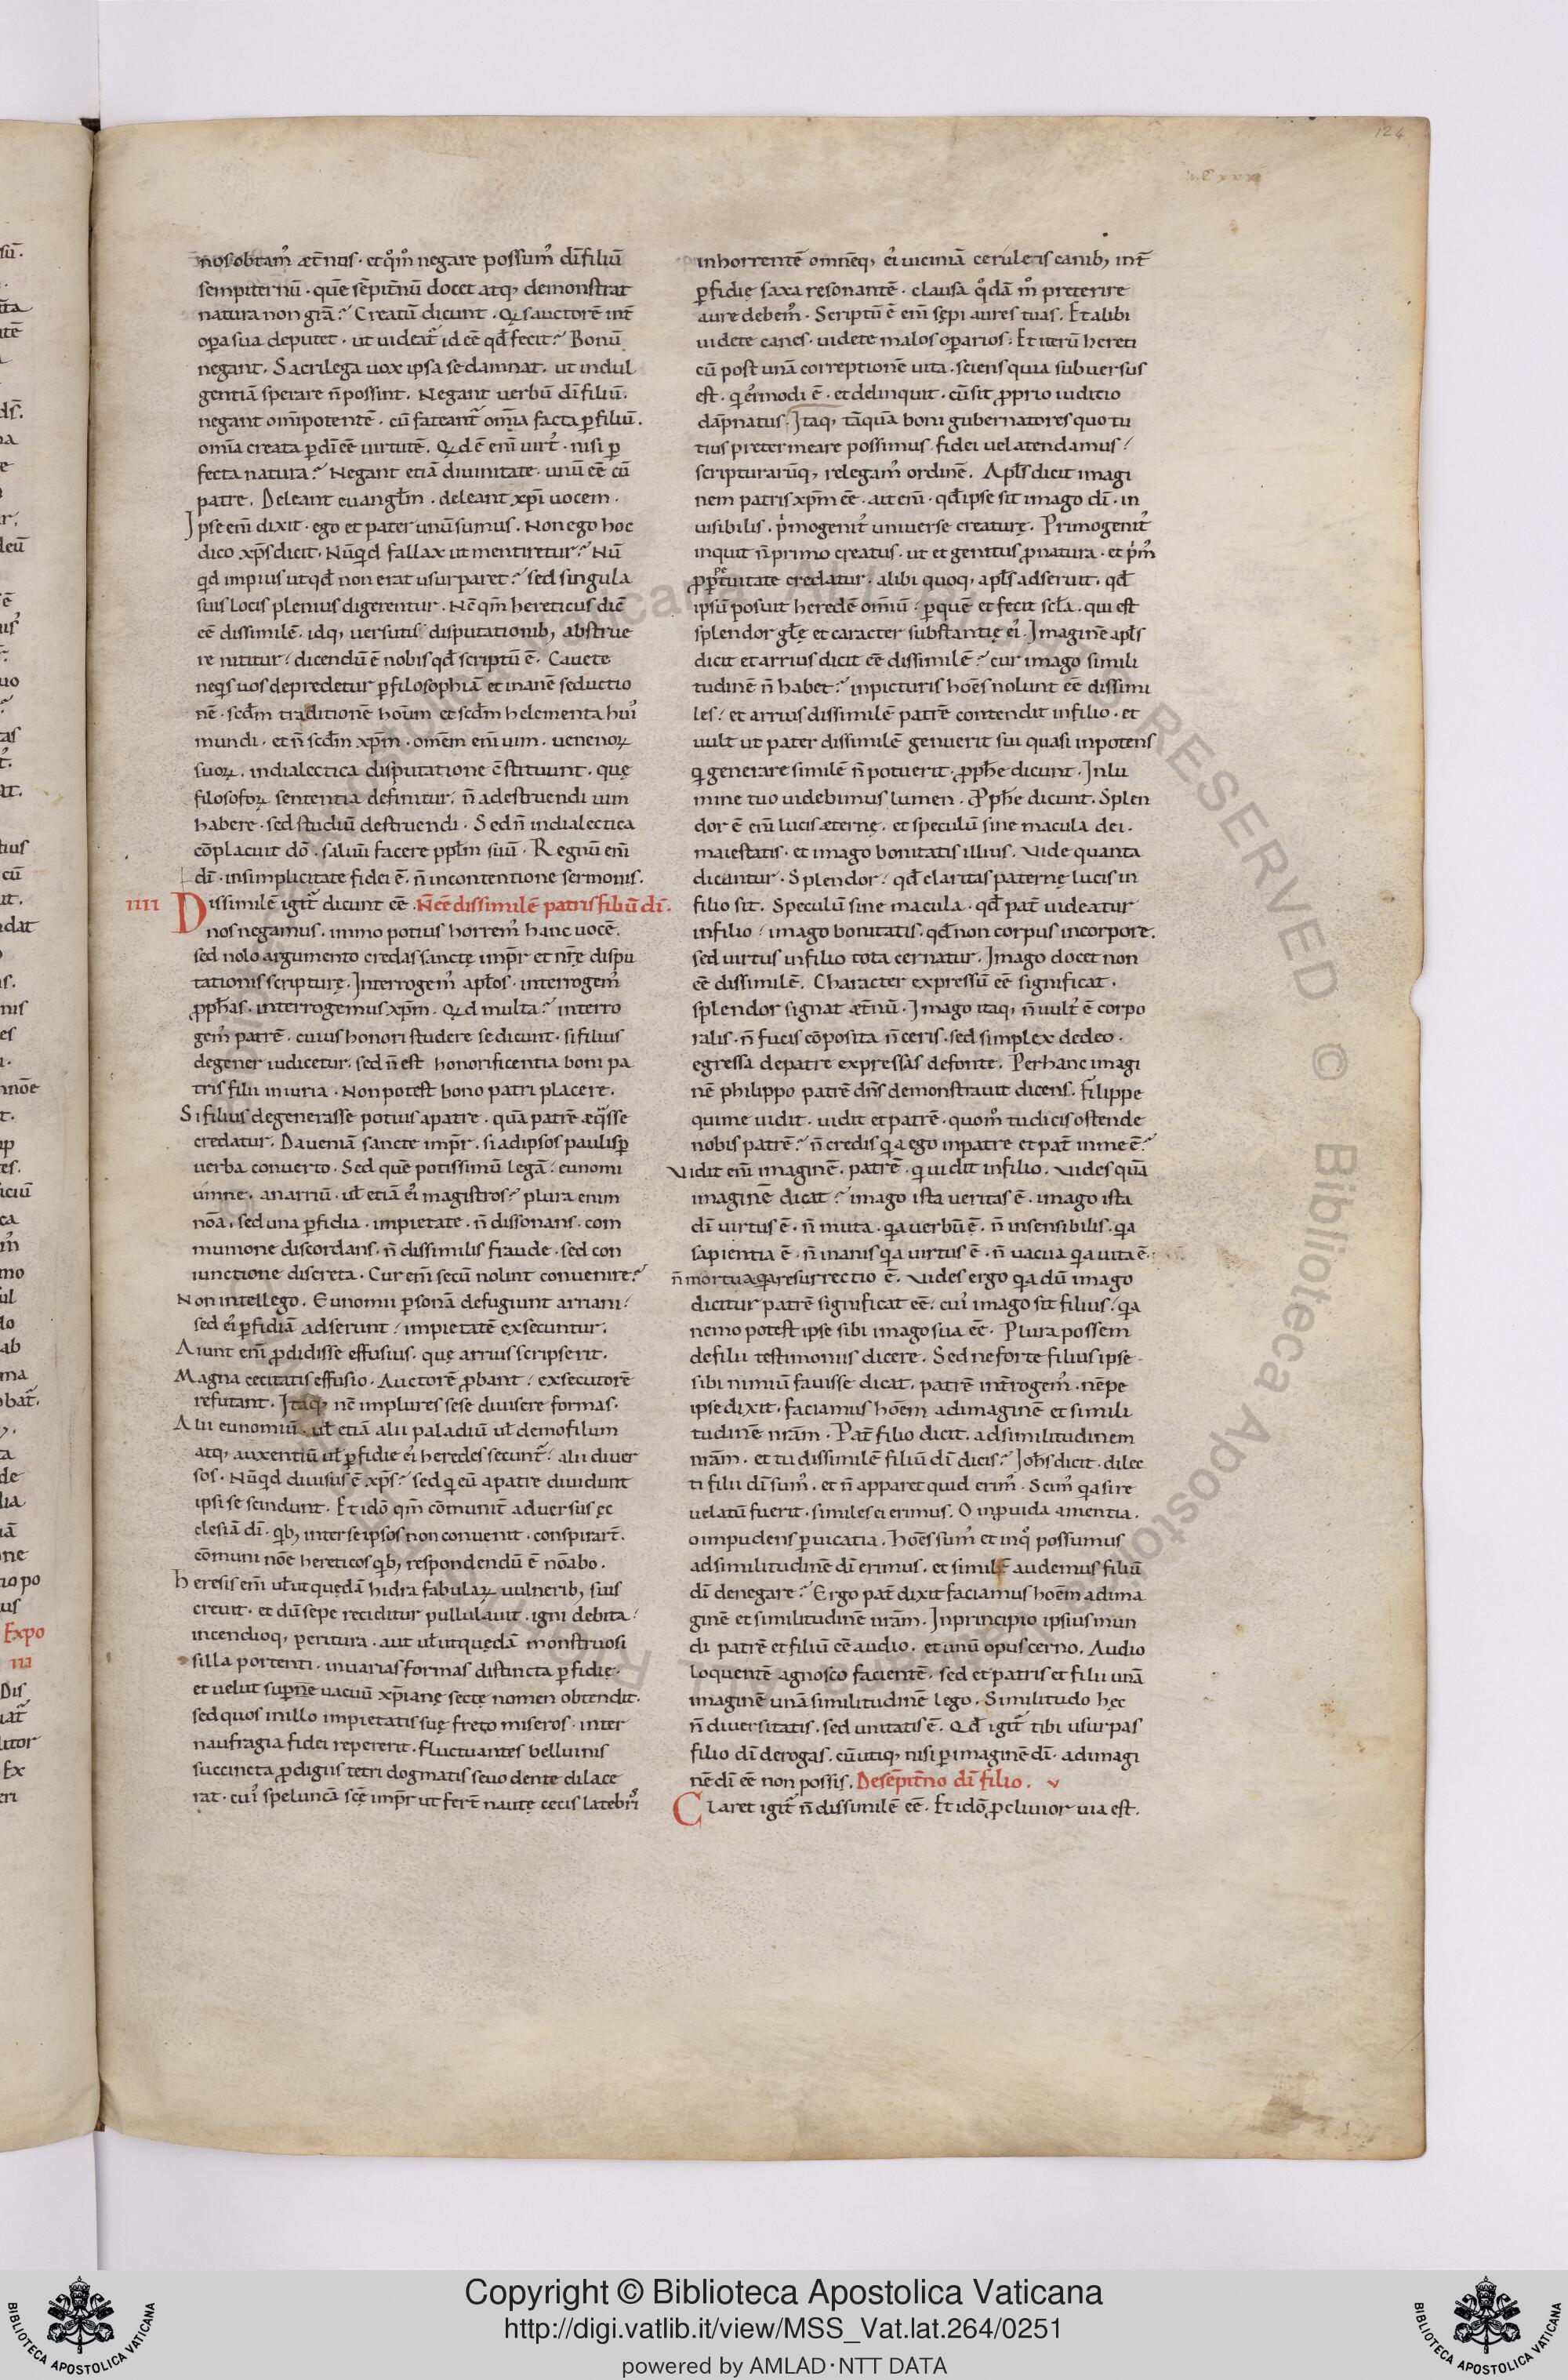 124
nos obtam᷒ æt̄nitis · et q̊m᷒ negare possum᷒ dī filiū
sempiternū · quē sēpit̄nū docet atq; demonstrat
natura non grā? Creatū dicunt · Qꝭ auctorē int̄
oꝑa sua deputet · ut uideat᷑ id eē qđ fecit? Bonū
negant · Sacrilega uox ipsa se damnat · ut indul
gentiā sperare n̄ possint · Negant uerbū dī filiū ·
negant om̄ipotentē · cū fateant᷑ om̄ia facta ꝑ filiū ·
om̄ia creata ꝑ dī eē uirtutē · Qd ē eni᷒ uirt᷒ · nisi ꝑ
fecta natura? Negant etiā diuinitate · unū eē cū
patre · Deleant euanglm̄ · deleant xp̄i uocem ·
Ipse enī dixit · ego et pater unū sumus · Non ego hoc
dico xp̄s dicit · Nūqd fallax ut mentiretur? Nū
qd impius ut qđ non erat usurparet? sed singula
suis locis plenius digerentur · Nc̄ qm̄ hereticus dic̄
eē dissimilē · idq; uersutis disputationib; abstrue
re nititur: dicendū ē nobis qđ scriptū ē · Cauete
neq̇s uos depredetur ꝑ filosophiā et inanē seductio
nē · scđm traditionē houm et scđm helementa hui᷒
mundi · et n̄ scđm xp̄m · omēm enī uim · uenenoꝝ
suoꝝ · in dialectica disputatione c̄stituunt · quę
filosofoꝝ sententia definitur · n̄ adestruendi uim
habere · sed studiū destruendi · Sed n̄ in dialectica
cōplacuit dō · saluū facere pplm̄ suū · Regnū enī
dī · in simplicitate fidei ē · n̄ in contentione sermonis ·
IIII Dissimilē igit᷑ dicunt eē · N̄ eē dissimilē patris filiū dī ·
nos negamus · immo potius horrem᷒ hanc uocē ·
sed nolo argumento credas sanctę imp̄r et nr̄ę dispu
tationis scripturę · Interrogem᷒ apłos · interrogem᷒
ꝓpħas · interrogemus xp̄m · Qd multa? interro
gem᷒ patrē · cuius honori studere se dicunt · si filius
degener iudicetur · sed n̄ est honorificentia boni pa
tris filii iniuria · Non potest bono patri placere ·
Si filius degenerasse potius a patre · quā patrē æqͣsse
credatur · Da ueniā sancte imp̄r · si ad ipsos paulisꝑ
uerba conuerto · Sed quē potissimū legā: eunomi
umne · an arriū · ul etiā ei᷒ magistros? plura enim
nōa · sed una ꝑfidia · impietate · n̄ dissonans · com
munione discordans · n̄ dissimilis fraude · sed con
iunctione discreta · Cur enī secū nolint conuenire?
Non intellego · Eunomii ꝑsonā defugiunt arriani:
sed ei᷒ ꝑfidiā adserunt: impietatē exsecuntur ·
Aiunt enī ꝓdidisse effusius · quę arrius scripserit ·
Magna cecitatis effusio · Auctorē ꝓbant: exsecutorē
refutant · Itaq; nc̄ in plures sese diuisere formas ·
Alii eunomiū · ul etiā alii paladiū ul demofilum
atq; auxentiū ul ꝑfidie ei᷒ heredes secunt᷑: alii diuer
sos · Nūqd diuisus ē xp̄s? sed qi eū a patre diuidunt
ipsi se scindunt · Et idō qm̄ cōmunit̄ aduersus ec
clesiā dī · qb; inter se ipsos non conuenit · conspirar̄t ·
cōmuni nōe hereticos qb; respondendū ē nōabo ·
Heresis enī ul ut quedā hidra fabulaꝝ uulnerib; suis
creuit · et dū sepe reciditur pullulauit · igni debita:
incendioq; peritura · aut ul ut quędā monstruosi
silla portenti · in uarias formas distincta ꝑfidię ·
et uelut suꝑne uacuū xp̄ianę sectę nomen obtendit ·
sed quos in illo impietatis suę freto miseros · inter
naufragia fidei repererit · fluctuantes belluinis
succincta ꝓdigiis tetri dogmatis seuo dente dilace
rat · cui᷒ speluncā scē imp̄r ut fert̄ nautę cecis latebr̊i
inhorrentē omnēq; ei᷒ uiciniā ceruleis canib; int̄
ꝑfidię saxa resonantē · clausa q̊dā m̊ preterire
aure debem᷒ · Scriptū ē enī sępi aures tuas · Et alibi
uidete canes · uidete malos oꝑarios: Et iterū hereti
cū post unā correptionē uita · sciens quia subuersus
est · qi ei᷒modi ē · et delinquit · cū sit ꝓprio iuditio
dāpnatus · Itaq; tāquā boni gubernatores quo tu
tius preter meare possimus · fidei uela tendamus:
scripturarūq; relegam᷒ ordinē · Apls dicit imagi
nem patris xp̄m eē · ait enī · qđ ipse sit imago dī · in
uisibilis · pͥmogenit᷒ uniuerse creaturę · Primogenit᷒
inquit n̄ primo creatus · ut et genitus ꝓ natura · et pͥm᷒
ꝓ ꝑpetuitate credatur · alibi quoq; apls adseruit · qđ
ipsū posuit heredē om̄iū: ꝑ quē et fecit scła · qui est
splendor głę et caracter substantię ei᷒ · Imaginē apls
dicit et arrius dicit eē dissimilē? cur imago simili
tudinē n̄ habet? in picturis hoēs nolunt eē dissimi
les: et arrius dissimilē patrē contendit in filio · et
uult ut pater dissimilē genuerit sui quasi inpotens
qi generare similē n̄ potuerit · ꝓpħe dicunt · In lu
mine tuo uidebimus lumen · Ꝓpħe dicunt · Splen
dor ē enī lucis æternę · et speculū sine macula dei ·
maiestatis · et imago bonitatis illius · Vide quanta
dicantur · Splendor: qđ claritas paternę lucis in
filio sit · Speculū sine macula · qđ pat̄ uideatur
in filio: imago bonitatis · qđ non corpus in corpore ·
sed uirtus in filio tota cernatur · Imago docet non
eē dissimilē · Character expressū eē significat ·
splendor signat æt̄nū · Imago itaq; n̄ uult᷒ ē corpo
ralis · n̄ fucis cōposita n̄ ceris · sed simplex de deo ·
egressa de patre expressas de fonte · Per hanc imagi
nē philippo patrē dn̄s demonstrauit dicens · filippe
qui me uidit · uidit et patrē · quom᷒ tu dicis ostende
nobis patrē? n̄ credis qa ego in patre et pat̄ in me ē?
Vidit enī imaginē · patrē · qi uidit in filio · Vides quā
imaginē dicat? imago ista ueritas ē · imago ista
dī uirtus ē · n̄ muta · qa uerbū ē · n̄ insensibilis · qa
sapientia ē · n̄ inanis qa uirtus ē · n̄ uacua qa uita ē ·
n̄ mortua qa resurrectio ē · Vides ergo qa dū imago
dicitur patrē significat eē · cui᷒ imago sit filius: qa
nemo potest ipse sibi imago sua eē · Plura possem
de filii testimoniis dicere · Sed ne forte filius ipse
sibi nimiū fauisse dicat · patrē int̄rogem᷒ · nēpe
ipse dixit · faciamus hoēm ad imaginē et simili
tudinē nr̄am · Pat̄ filio dicit · ad similitudinem
nr̄am · et tu dissimilē filiū dī dicis? Ioħs dicit · dilec
ti filii dī sum᷒ · et n̄ apparet quid erim᷒ · Scim᷒ qa si re
uelatū fuerit · similes ei erimus · O inprouida amentia ·
o impudens ꝑuicatia · hoēs sum᷒ et inq̊ possumus
ad similitudinē dī erimus · et similē audemus filiū
dī denegare? Ergo pat̄ dixit faciamus hoēm ad ima
ginē et similitudinē nr̄am · In principio ipsius mun
di patrē et filiū eē audio · et unū opus cerno · Audio
loquentē agnosco facientē · sed et patris et filii unā
imaginē unā similitudinē lego · Similitudo hęc
n̄ diuersitatis · sed unitatis ē · Qđ igit᷑ tibi usurpas
filio dī derogas · cū utiq; nisi ꝑ imaginē dī · ad imagi
nē dī eē non possis · De sēpit̄no dī filio · V
Claret igit᷑ n̄ dissimilē eē · Et idō ꝓcliuior uia est ·
Copyright © Biblioteca Apostolica Vaticana
http://digi.vatlib.it/view/MSS_Vat.lat.264/0251
powered by AMLAD·NTT DATA